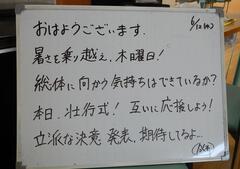 おはようございます.
6/12(木)
暑さを乗り越え、木曜日!
総体に向かう気持ちはできているか?
本日、壮行式! 互いに応援しよう!
立派な決意 発表、期待してるよ…